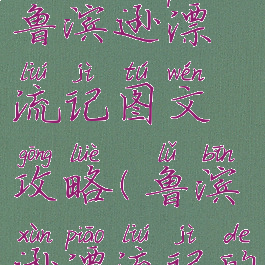 鲁滨逊漂
liú jì tú wén
流记图文
gōng lüè lǔ bīn
攻略(鲁滨
xùn piāo liú jì de
逊漂流记的